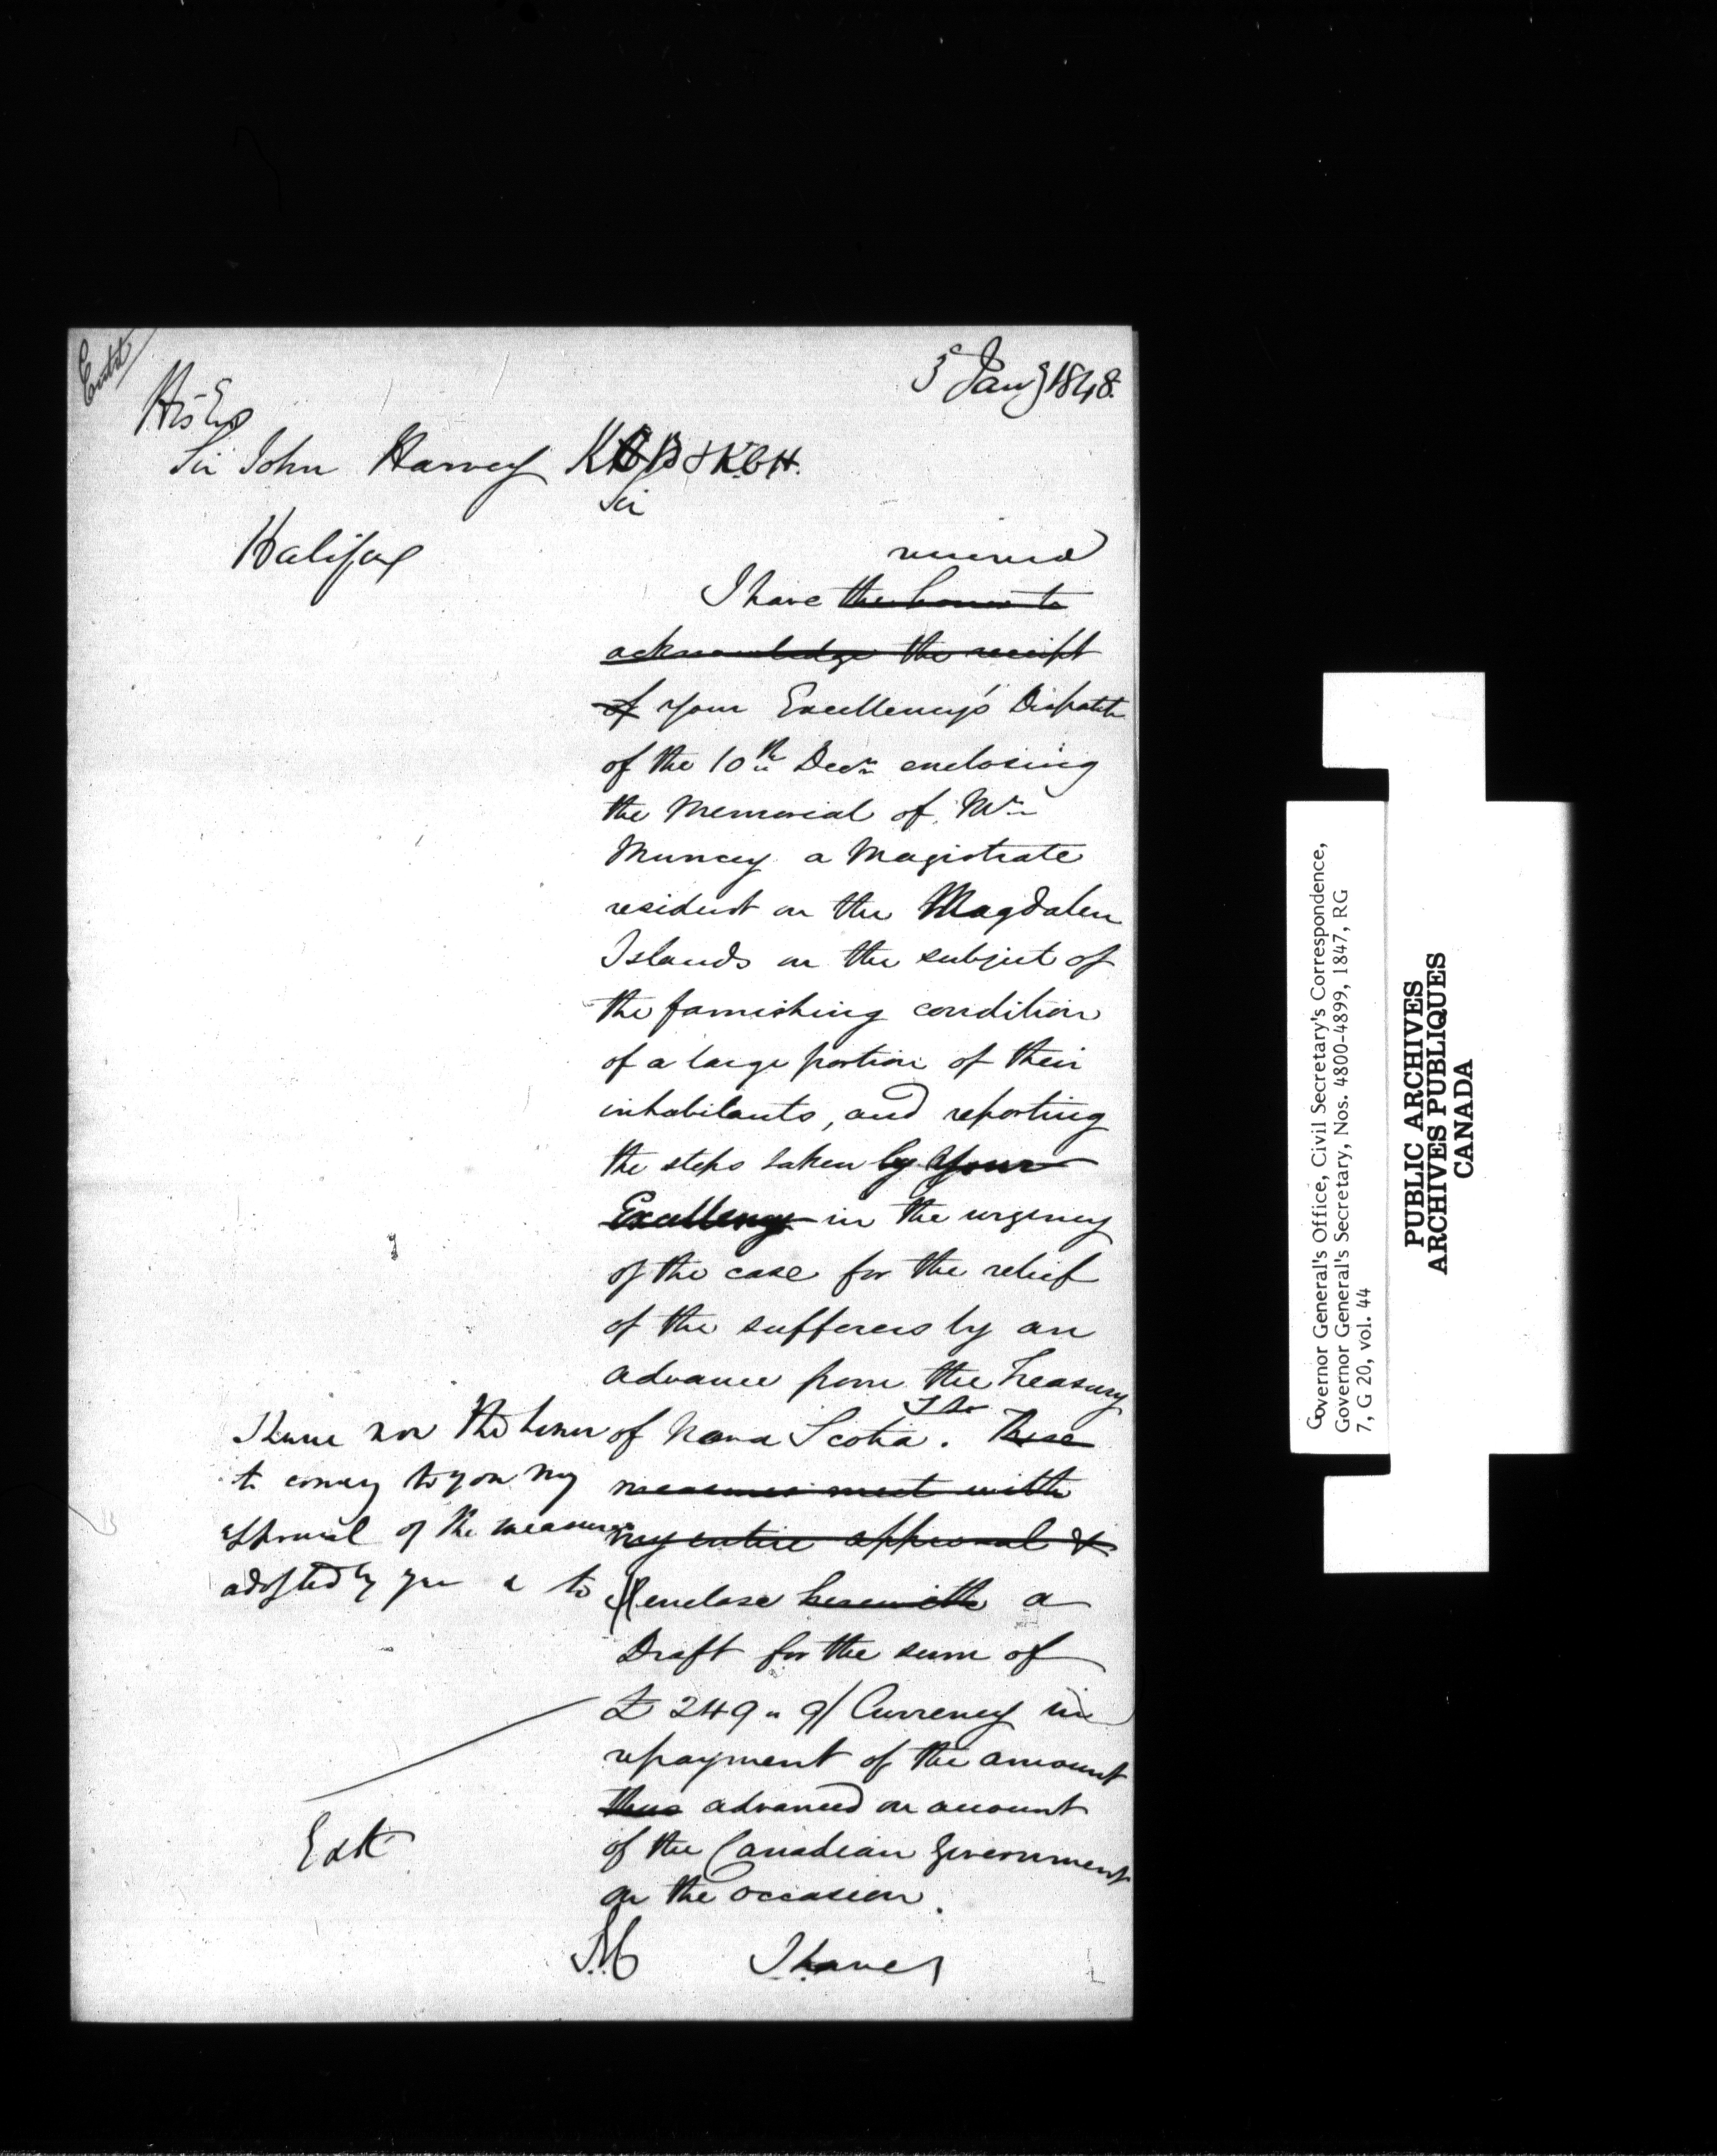 Entd
5 Jany 1848.
His Exy
Sir John Harvey KCB & KCH.
Sir
Halifax
received
I have the honor to
acknowledge the receipt
of Your Excellency's Dispatch
of the 10th Decr enclosing
the Memorial of Mr
Muncey a Magistrate
resident on the Magdalen
Islands on the subject of
the famishing condition
of a large portion of their
inhabitants, and reporting
the steps taken by Your
Excellency in the urgency
of the case for the relief
of the sufferers by an
advance from the Treasury
of Nova Scotia. These
measures meet with
my entire approval &
I have now the honor
to convey to you my
approval of the measures
adopted by you & to
enclose herewith a
Draft for the sum of
£249 " 9/ Currency in
repayment of the amount
thus advanced on account
of the Canadian Government
on the occasion.
I have
Governor General's Office, Civil Secretary's Correspondence,
Governor General's Secretary, Nos. 4800-4899, 1847, RG
7, G 20, vol. 44
PUBLIC ARCHIVES
ARCHIVES PUBLIQUES
CANADA